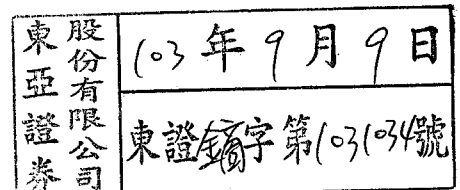 東亞證券
股份有限公司
103年9月9日
東證字第1031034號